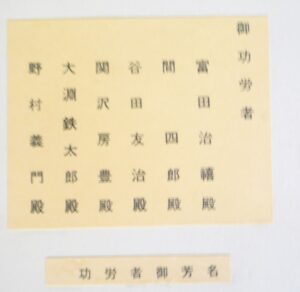 御功労者
富田治禧殿
間四郎殿
谷田友治殿
関沢房豊殿
大淵鉄太郎殿
野村義門殿
功労者御芳名